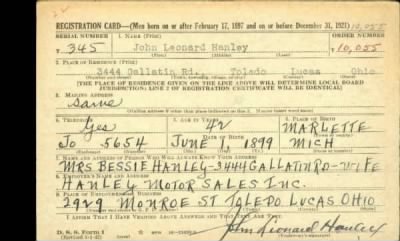 REGISTRATION CARD—(Men born on or after February 17, 1897 and on or before December 31, 1921) 10,055
SERIAL NUMBER 1. NAME (Print) ORDER NUMBER
T 345 John Leonard Hanley T 10,055
2. PLACE OF RESIDENCE (Print)
3444 Gallatin Rd., Toledo Lucas Ohio
(Number and street) (Town, township, village, or city) (County) (State)
[THE PLACE OF RESIDENCE GIVEN ON THE LINE ABOVE WILL DETERMINE LOCAL BOARD
JURISDICTION; LINE 2 OF REGISTRATION CERTIFICATE WILL BE IDENTICAL]
3. MAILING ADDRESS
Same
[Mailing address if other than place indicated on line 2. If same insert word same]
4. TELEPHONE 5. AGE IN YEARS 6. PLACE OF BIRTH
Yes 42 MARLETTE
DATE OF BIRTH
Jo 5654 JUNE 1 1899 MICH
7. NAME AND ADDRESS OF PERSON WHO WILL ALWAYS KNOW YOUR ADDRESS
MRS BESSIE HANLEY-3444 GALLATIN RD-WIFE
8. EMPLOYER'S NAME AND ADDRESS
HANLEY MOTOR SALES INC.
9. PLACE OF EMPLOYMENT OR BUSINESS
2929 MONROE ST TOLEDO LUCAS OHIO
(Number and street or R. F. D. number) (Town) (County) (State)
I AFFIRM THAT I HAVE VERIFIED ABOVE ANSWERS AND THAT THEY ARE TRUE.
D. S. S. Form 1
(Revised 1-1-42) (over) 16—
John Leonard Hanley